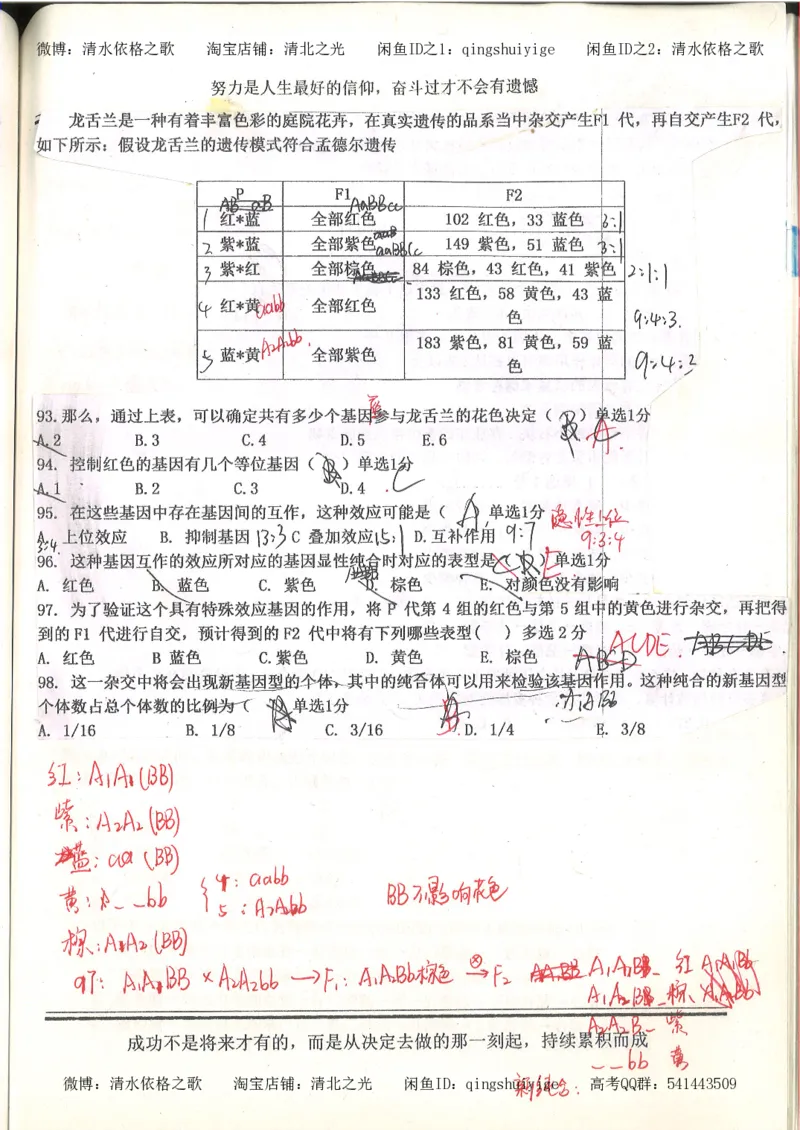 微博：清水依格之歌 淘宝店铺：清北之光 闲鱼ID之1：qingshuiyige 闲鱼ID之2：清水依格之歌
努力是人生最好的信仰，奋斗过才不会有遗憾
龙舌兰是一种有着丰富色彩的庭院花卉，在真实遗传的品系当中杂交产生F1 代，再自交产生F2 代，
如下所示：假设龙舌兰的遗传模式符合孟德尔遗传
P F1 F2
AB aB AaBBCc
1 红*蓝 全部红色 102 红色，33 蓝色 3:1
2 紫*蓝 全部紫色 aaBBCc 149 紫色，51 蓝色 3:1
3 紫*红 全部棕色 84 棕色，43 红色，41 紫色 2:1:1
4 红*黄 aabb 全部红色 133 红色，58 黄色，43 蓝色 9:4:3.
5 蓝*黄 A2A2bb. 全部紫色 183 紫色，81 黄色，59 蓝色 9:4:3
93.那么，通过上表，可以确定共有多少个基因座参与龙舌兰的花色决定（ ）单选1分 A.
A.2 B.3 C.4 D.5 E.6
94. 控制红色的基因有几个等位基因（ ）单选1分
A.1 B.2 C.3 D.4 C
95. 在这些基因中存在基因间的互作，这种效应可能是（ A 单选1分 隐性上位
A. 上位效应 B. 抑制基因 13:3 C 叠加效应 15:1 D.互补作用 9:7 9:3:4
3:4.
96. 这种基因互作的效应所对应的基因显性纯合时对应的表型是（ ）单选1分 E
A. 红色 B. 蓝色 C. 紫色 D. 棕色 E. 对颜色没有影响
97. 为了验证这个具有特殊效应基因的作用，将 P 代第 4 组的红色与第 5 组中的黄色进行杂交，再把得
到的 F1 代进行自交，预计得到的 F2 代中将有下列哪些表型( ) 多选 2 分 ACDE.
A. 红色 B 蓝色 C.紫色 D. 黄色 E. 棕色 ABCD
98. 这一杂交中将会出现新基因型的个体，其中的纯合体可以用来检验该基因作用。这种纯合的新基因型
个体数占总个体数的比例为（ 单选1分
A. 1/16 B. 1/8 C. 3/16 D. 1/4 E. 3/8
红：A1A1(BB)
紫：A2A2(BB)
蓝：aa (BB)
黄：_ _bb { 4：aabb 5：A2A2bb BB不影响花色
棕：A1A2(BB)
97： A1A1BB × A2A2bb → F1：A1A2Bb棕色 ⊗→ F2 A1A1B_ 红
A1A2B_ 棕
A2A2B_ 紫
_ _bb 黄
成功不是将来才有的，而是从决定去做的那一刻起，持续累积而成
微博：清水依格之歌 淘宝店铺：清北之光 闲鱼ID：qingshuiyige 高考QQ群：541443509
新纯合：